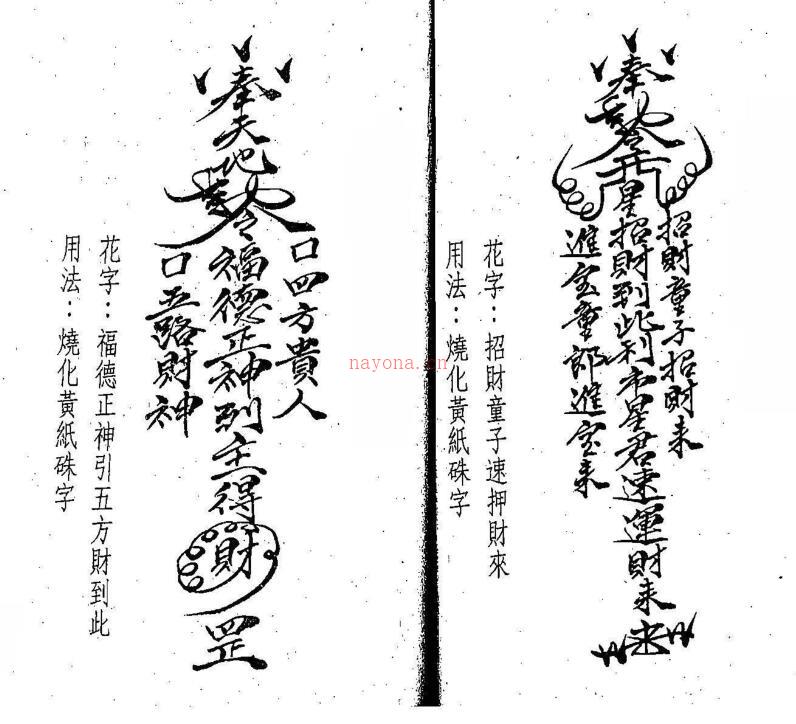 招財童子招財来
奉令星招財到此利市星君速運財来
進宝童郎進宝来
花字：招財童子速押財來
用法：燒化黃紙硃字
口四方貴人
奉天地令福德正神到主得財罡
口五路財神
花字：福德正神引五方財到此
用法：燒化黃紙硃字
nayona.cn